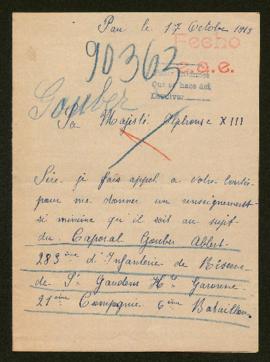 Pau le 17 Octobre 1915
Fecho
c.a.e.
90363
Que se hace así
Gouber
Sa Majesté Alphonse XIII
Sire je fais appel a votre
pour me donner un renseignement
si minime qu'il soit au sujet
du Caporal Gouber Albert
283ème d'Infanterie de Réserve
de St Gaudens Hte Garonne
21ème Compagnie 6ème Bataillon